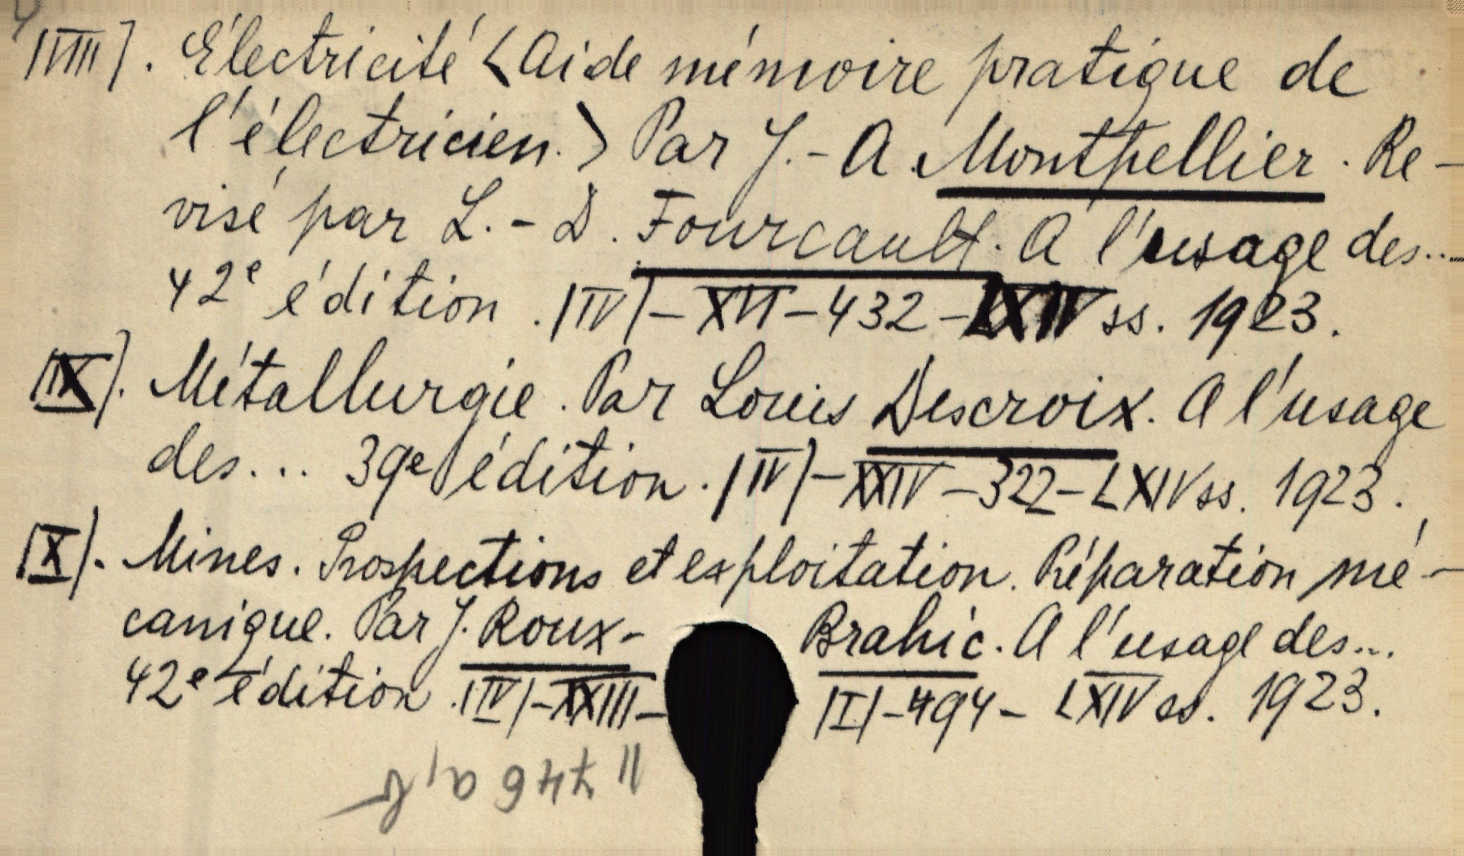 |VIII]. Électricité <Aide mémoire pratique de
l'électricien.> Par J.-A. Montpellier. Re-
visé par L.-D. Fourcault. A l'usage des...
42e édition. |IV|-XVI-432-LXIV ss. 1923.
|IX]. Métallurgie. Par Louis Descroix. A l'usage
des... 39e édition. |IV|-XXIV-322-LXIV ss. 1923.
|X|. Mines. Prospections et exploitation. Préparation mé-
canique. Par J. Roux-Brahic. A l'usage des...
42e édition. |IV|-XXIII-|I|-494-LXIV ss. 1923.